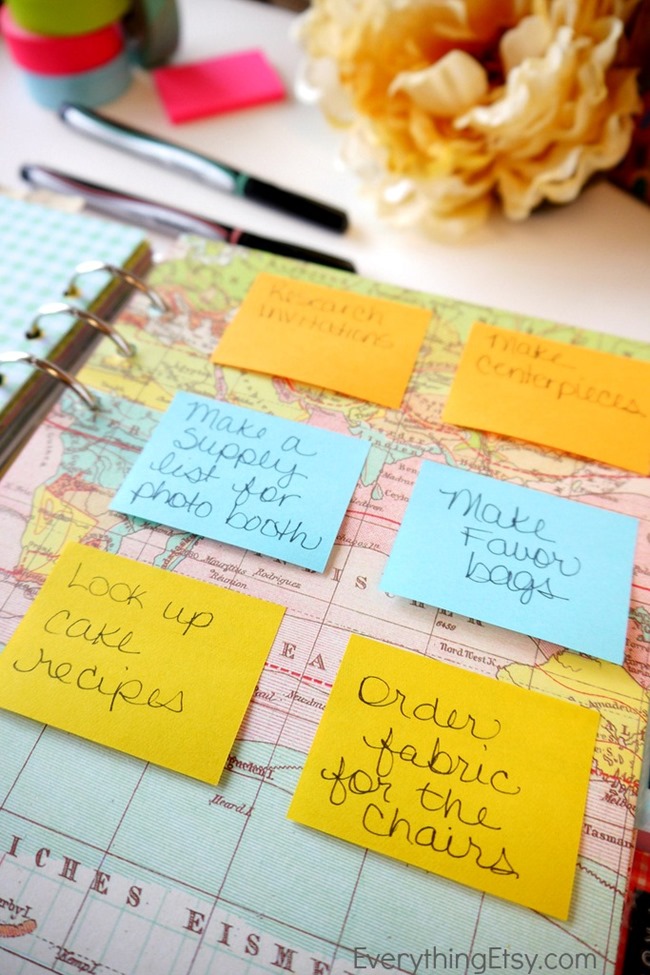 Research
Invitations
Make
Centerpieces
Make a
supply
list for
photo booth
Make
Favor
bags
Look up
cake
recipes
Order
fabric
for the
chairs
Mauritius
Réunion
Rodriguez
ISCHER
Nord West K.
EA
Heard I.
Tasman
ICHES EISME
Kemp I.
EverythingEtsy.com